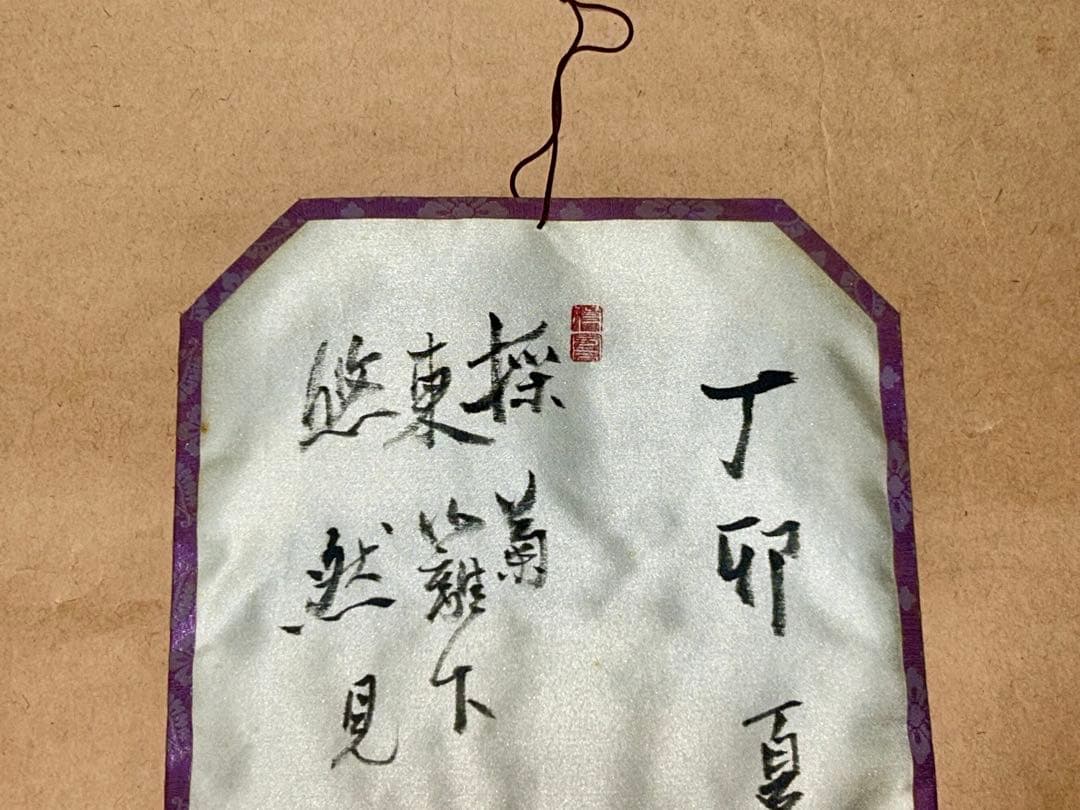 丁卯夏
採菊
東籬下
悠然見